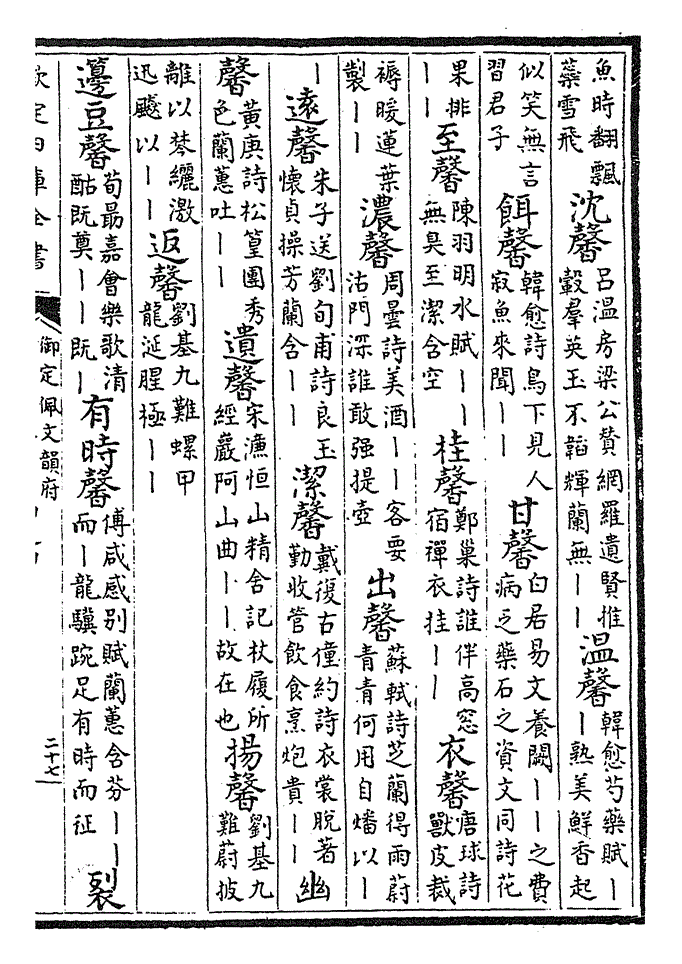 魚時翻飄
蘂雪飛
沈馨
呂温房梁公賛網羅遺賢推
轂羣英玉不韜輝蘭無丨丨
温馨
韓愈芍藥賦丨
丨熟美鮮香起
似笑無言
習君子
餌馨
韓愈詩鳥下見人
寂魚來聞丨丨
甘馨
白居易文養闕丨丨之費
病乏藥石之資文同詩花
果排
丨丨
至馨
陳羽明水賦丨丨
無臭至潔含空
桂馨
鄭巢詩誰伴高窓
宿禪衣挂丨丨
衣馨
唐球詩
獸皮裁
褥暖蓮葉
製丨丨
濃馨
周曇詩美酒丨丨客要
沽門深誰敢强提壺
出馨
蘇軾詩芝蘭得雨蔚
青青何用自燔以丨
丨
遠馨
朱子送劉旬甫詩良玉
懷貞操芳蘭含丨丨
潔馨
戴復古僮約詩衣裳脱著
勤收管飲食烹炮貴丨丨
幽
馨
黄庚詩松篁團秀
色蘭蕙吐丨丨
遺馨
宋濂恒山精舍記杖履所
經巖阿山曲丨丨故在也
揚馨
劉基九
難蔚披
離以棼纚激
迅飈以丨丨
返馨
劉基九難螺甲
龍涎腥極丨丨
籩豆馨
荀勗嘉會樂歌清
酤既奠丨丨既丨
有時馨
傅咸感别賦蘭蕙含芬丨丨
而丨龍驥踠足有時而征
裂
欽定四庫全書
御定佩文韻府
二十七